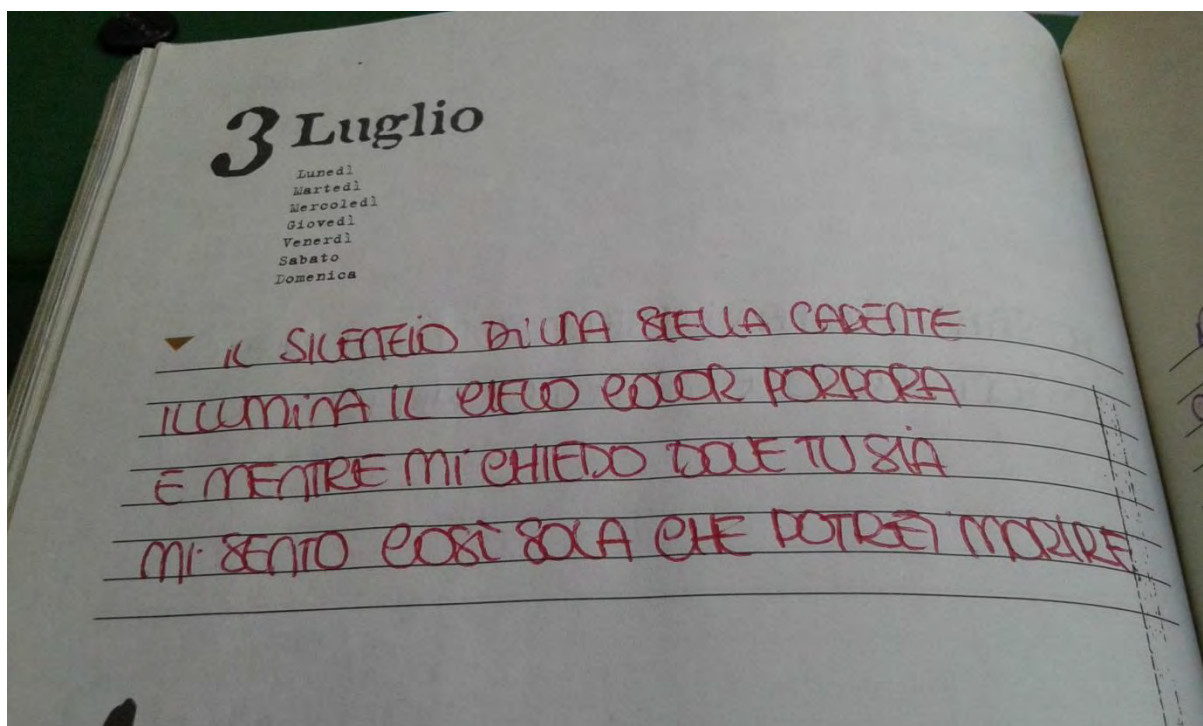 3 Luglio
Lunedì
Martedì
Mercoledì
Giovedì
Venerdì
Sabato
Domenica
IL SILENZIO DI UNA STELLA CADENTE
ILLUMINA IL CIELO COLOR PORPORA
E MENTRE MI CHIEDO DOVE TU SIA
MI SENTO COSÌ SOLA CHE POTREI MORIRE